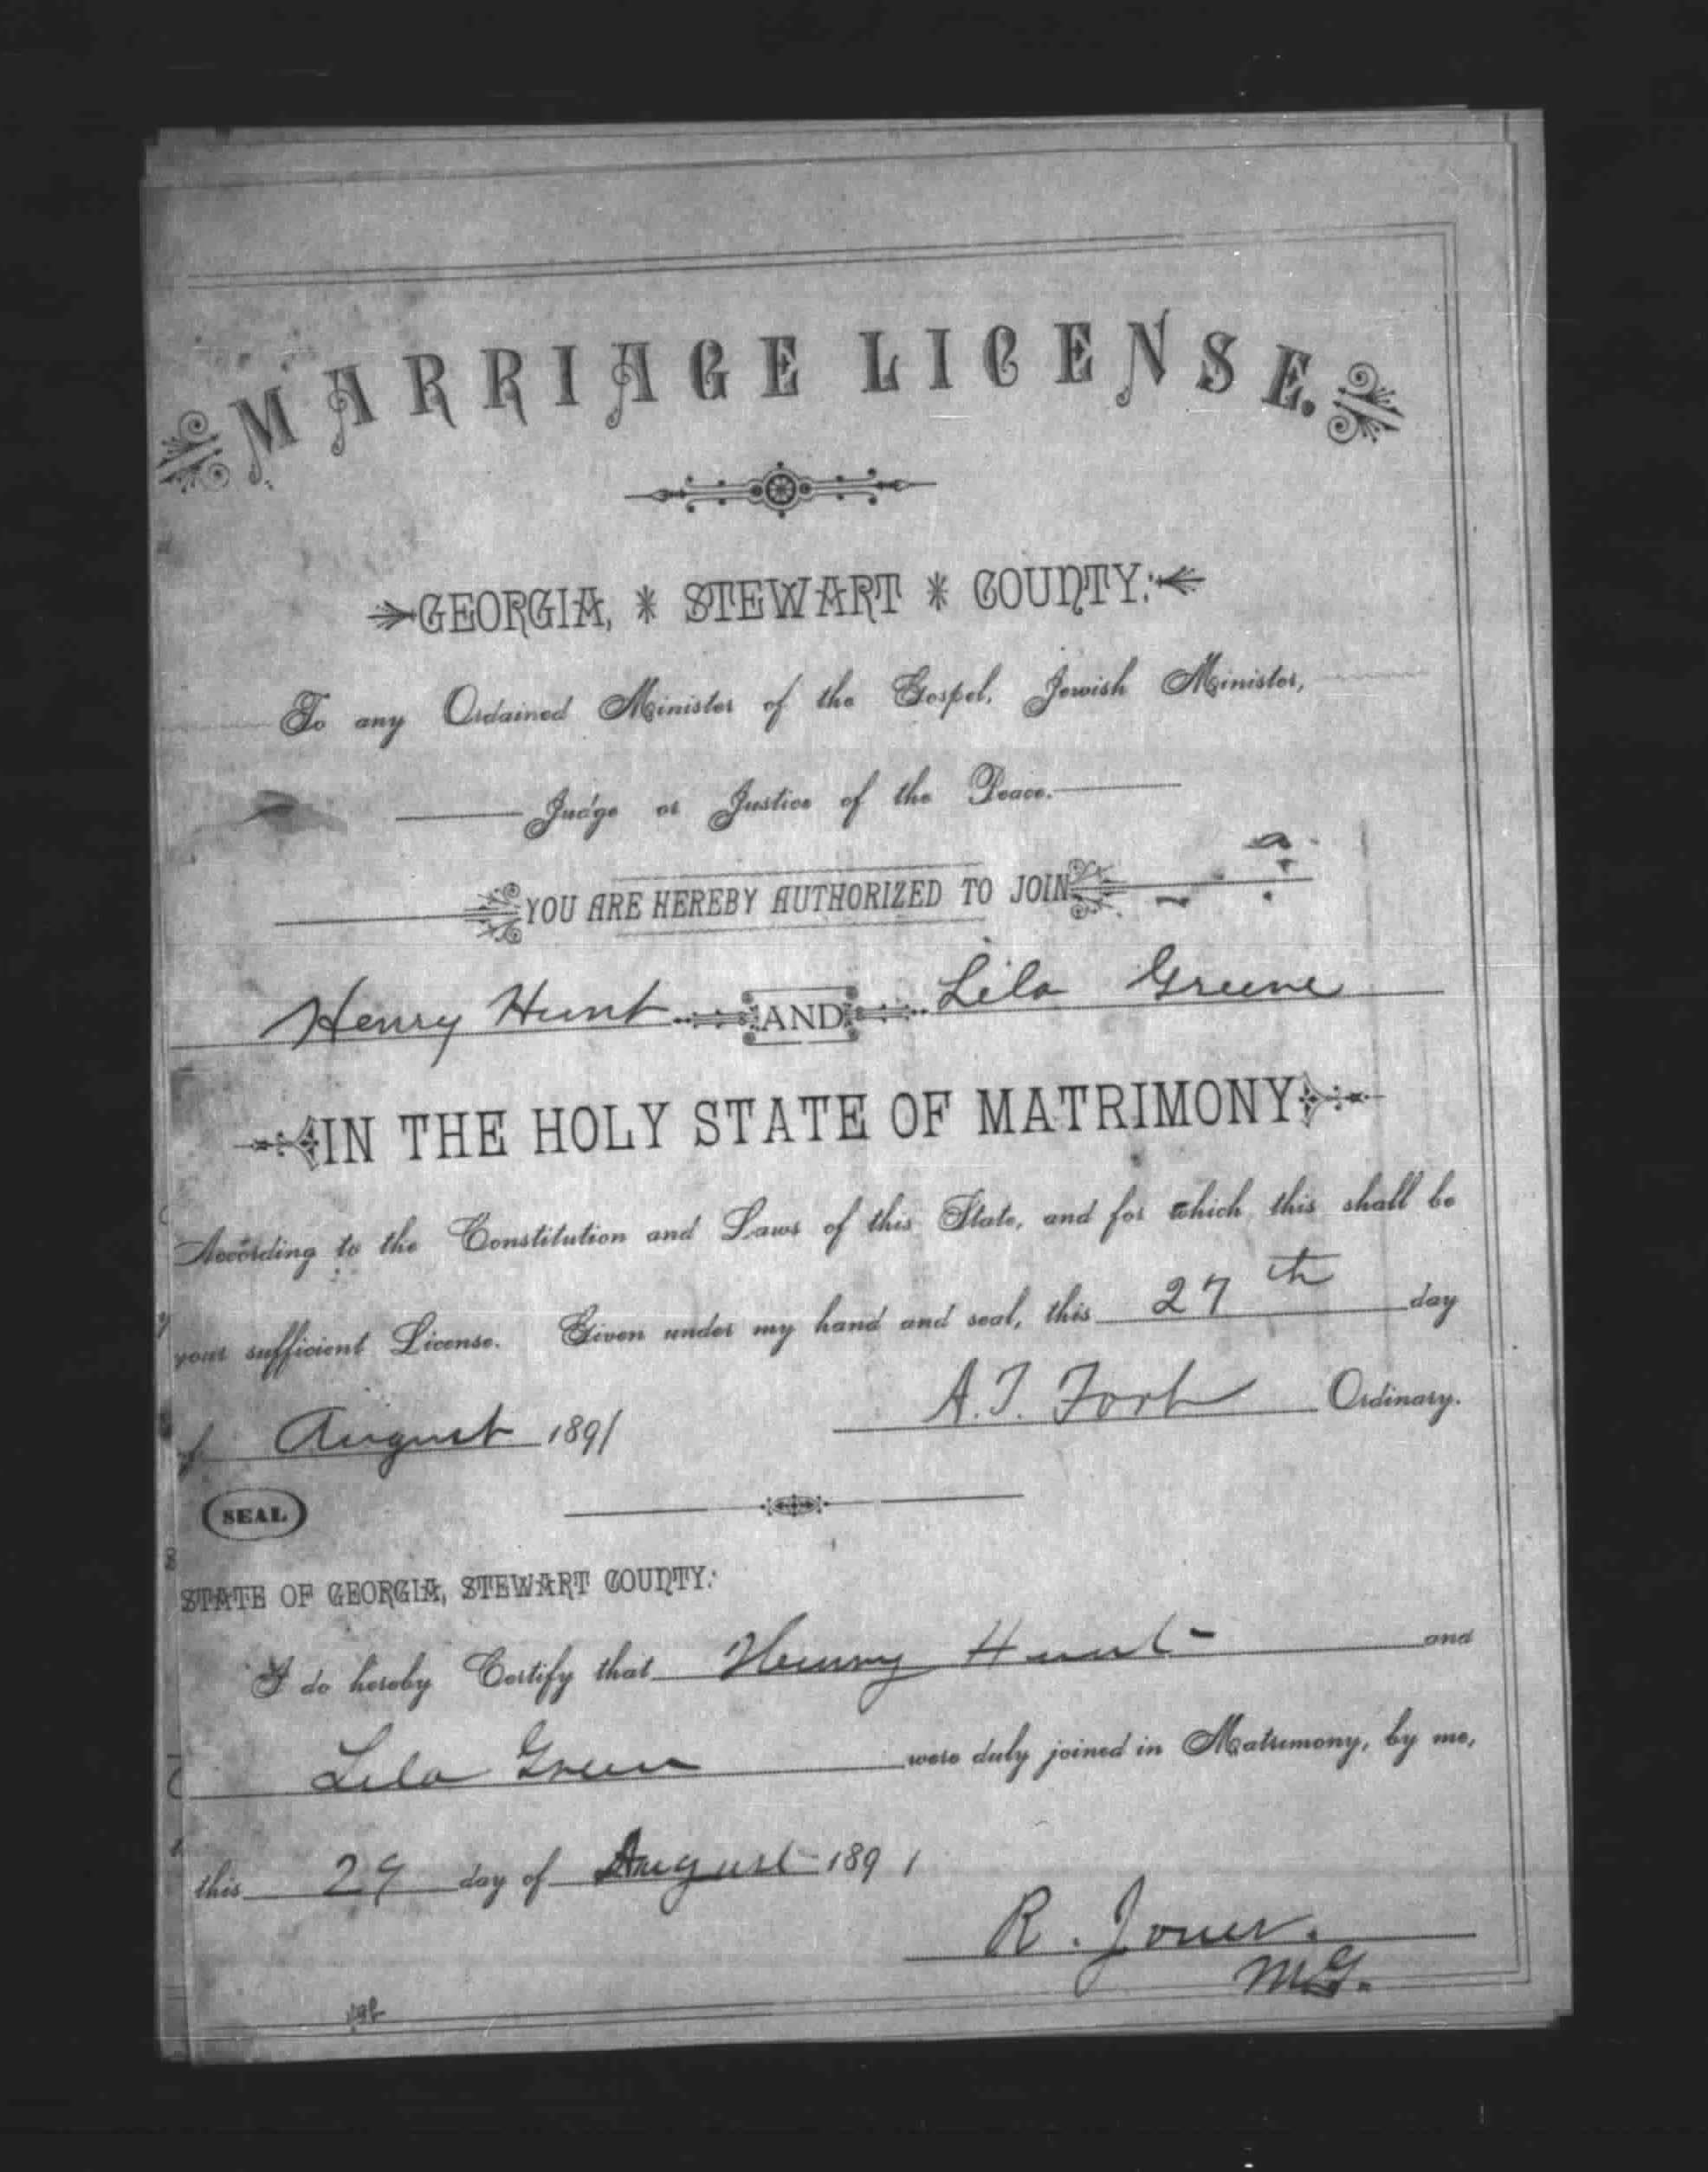 MARRIAGE LICENSE.
GEORGIA, * STEWART * COUNTY:
To any Ordained Minister of the Gospel, Jewish Minister,
Judge or Justice of the Peace.
YOU ARE HEREBY AUTHORIZED TO JOIN
Henry Hunt AND Lila Greene
IN THE HOLY STATE OF MATRIMONY
According to the Constitution and Laws of this State, and for which this shall be
your sufficient License. Given under my hand and seal, this 27th day
of August 1891 A.T. Fort Ordinary.
SEAL
STATE OF GEORGIA, STEWART COUNTY:
I do hereby Certify that Henry Hunt and
Lila Green were duly joined in Matrimony, by me,
this 29 day of August 1891
R. Jones.
M.G.